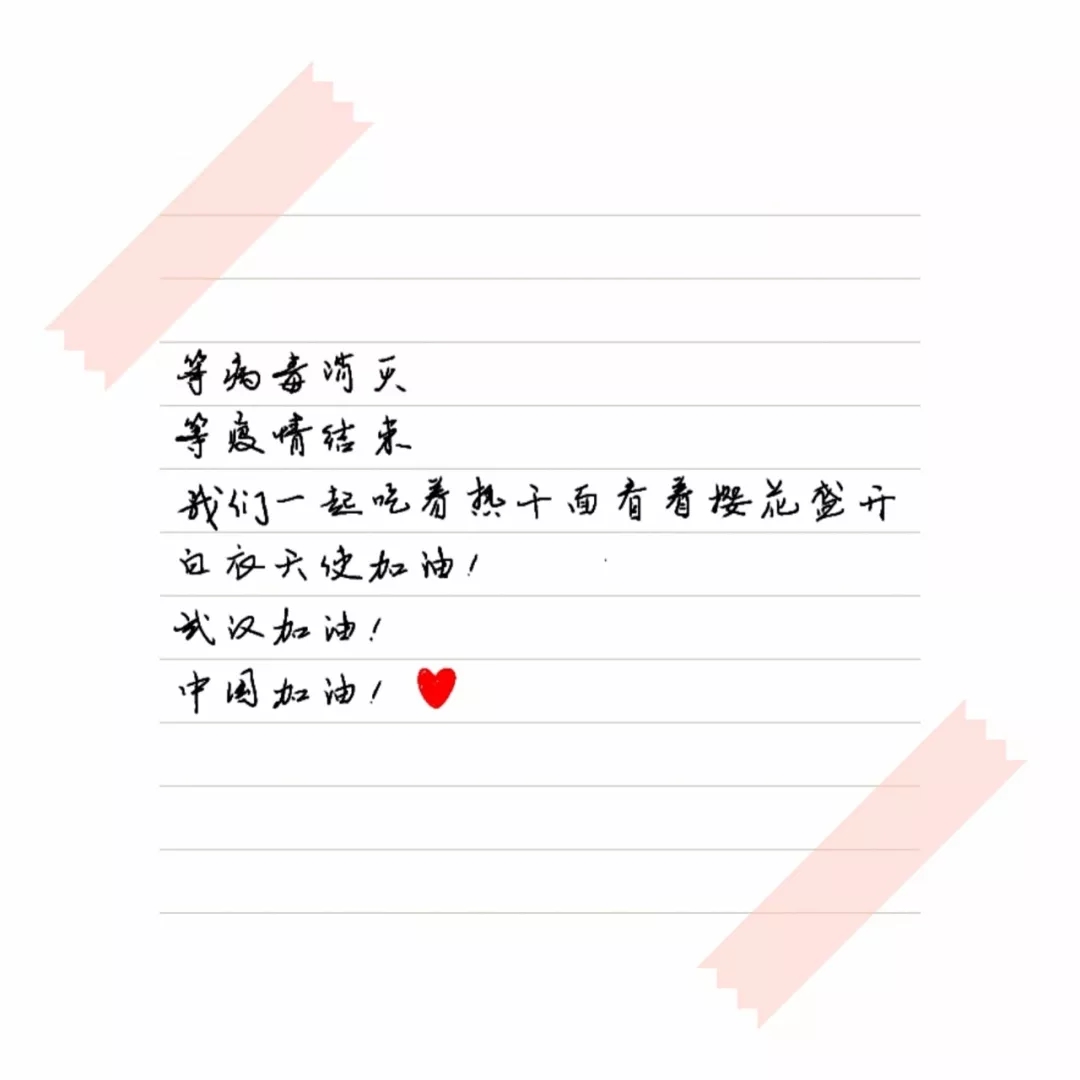 等病毒消灭
等疫情结束
我们一起吃着热干面看着樱花盛开
白衣天使加油!
武汉加油!
中国加油!